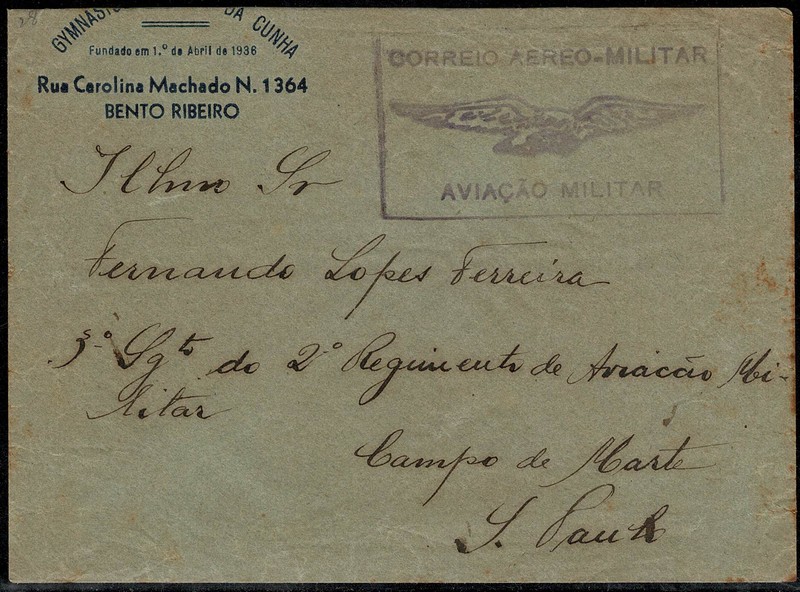 28
GYMNASIO DA CUNHA
Fundado em 1.º de Abril de 1936
Rua Carolina Machado N. 1364
BENTO RIBEIRO
CORREIO AEREO-MILITAR
AVIAÇÃO MILITAR
Illmo Sr
Fernando Lopes Ferreira
3º Sgto do 2º Regimento de Aviacão Mi-
litar
Campo de Marte
S. Paulo